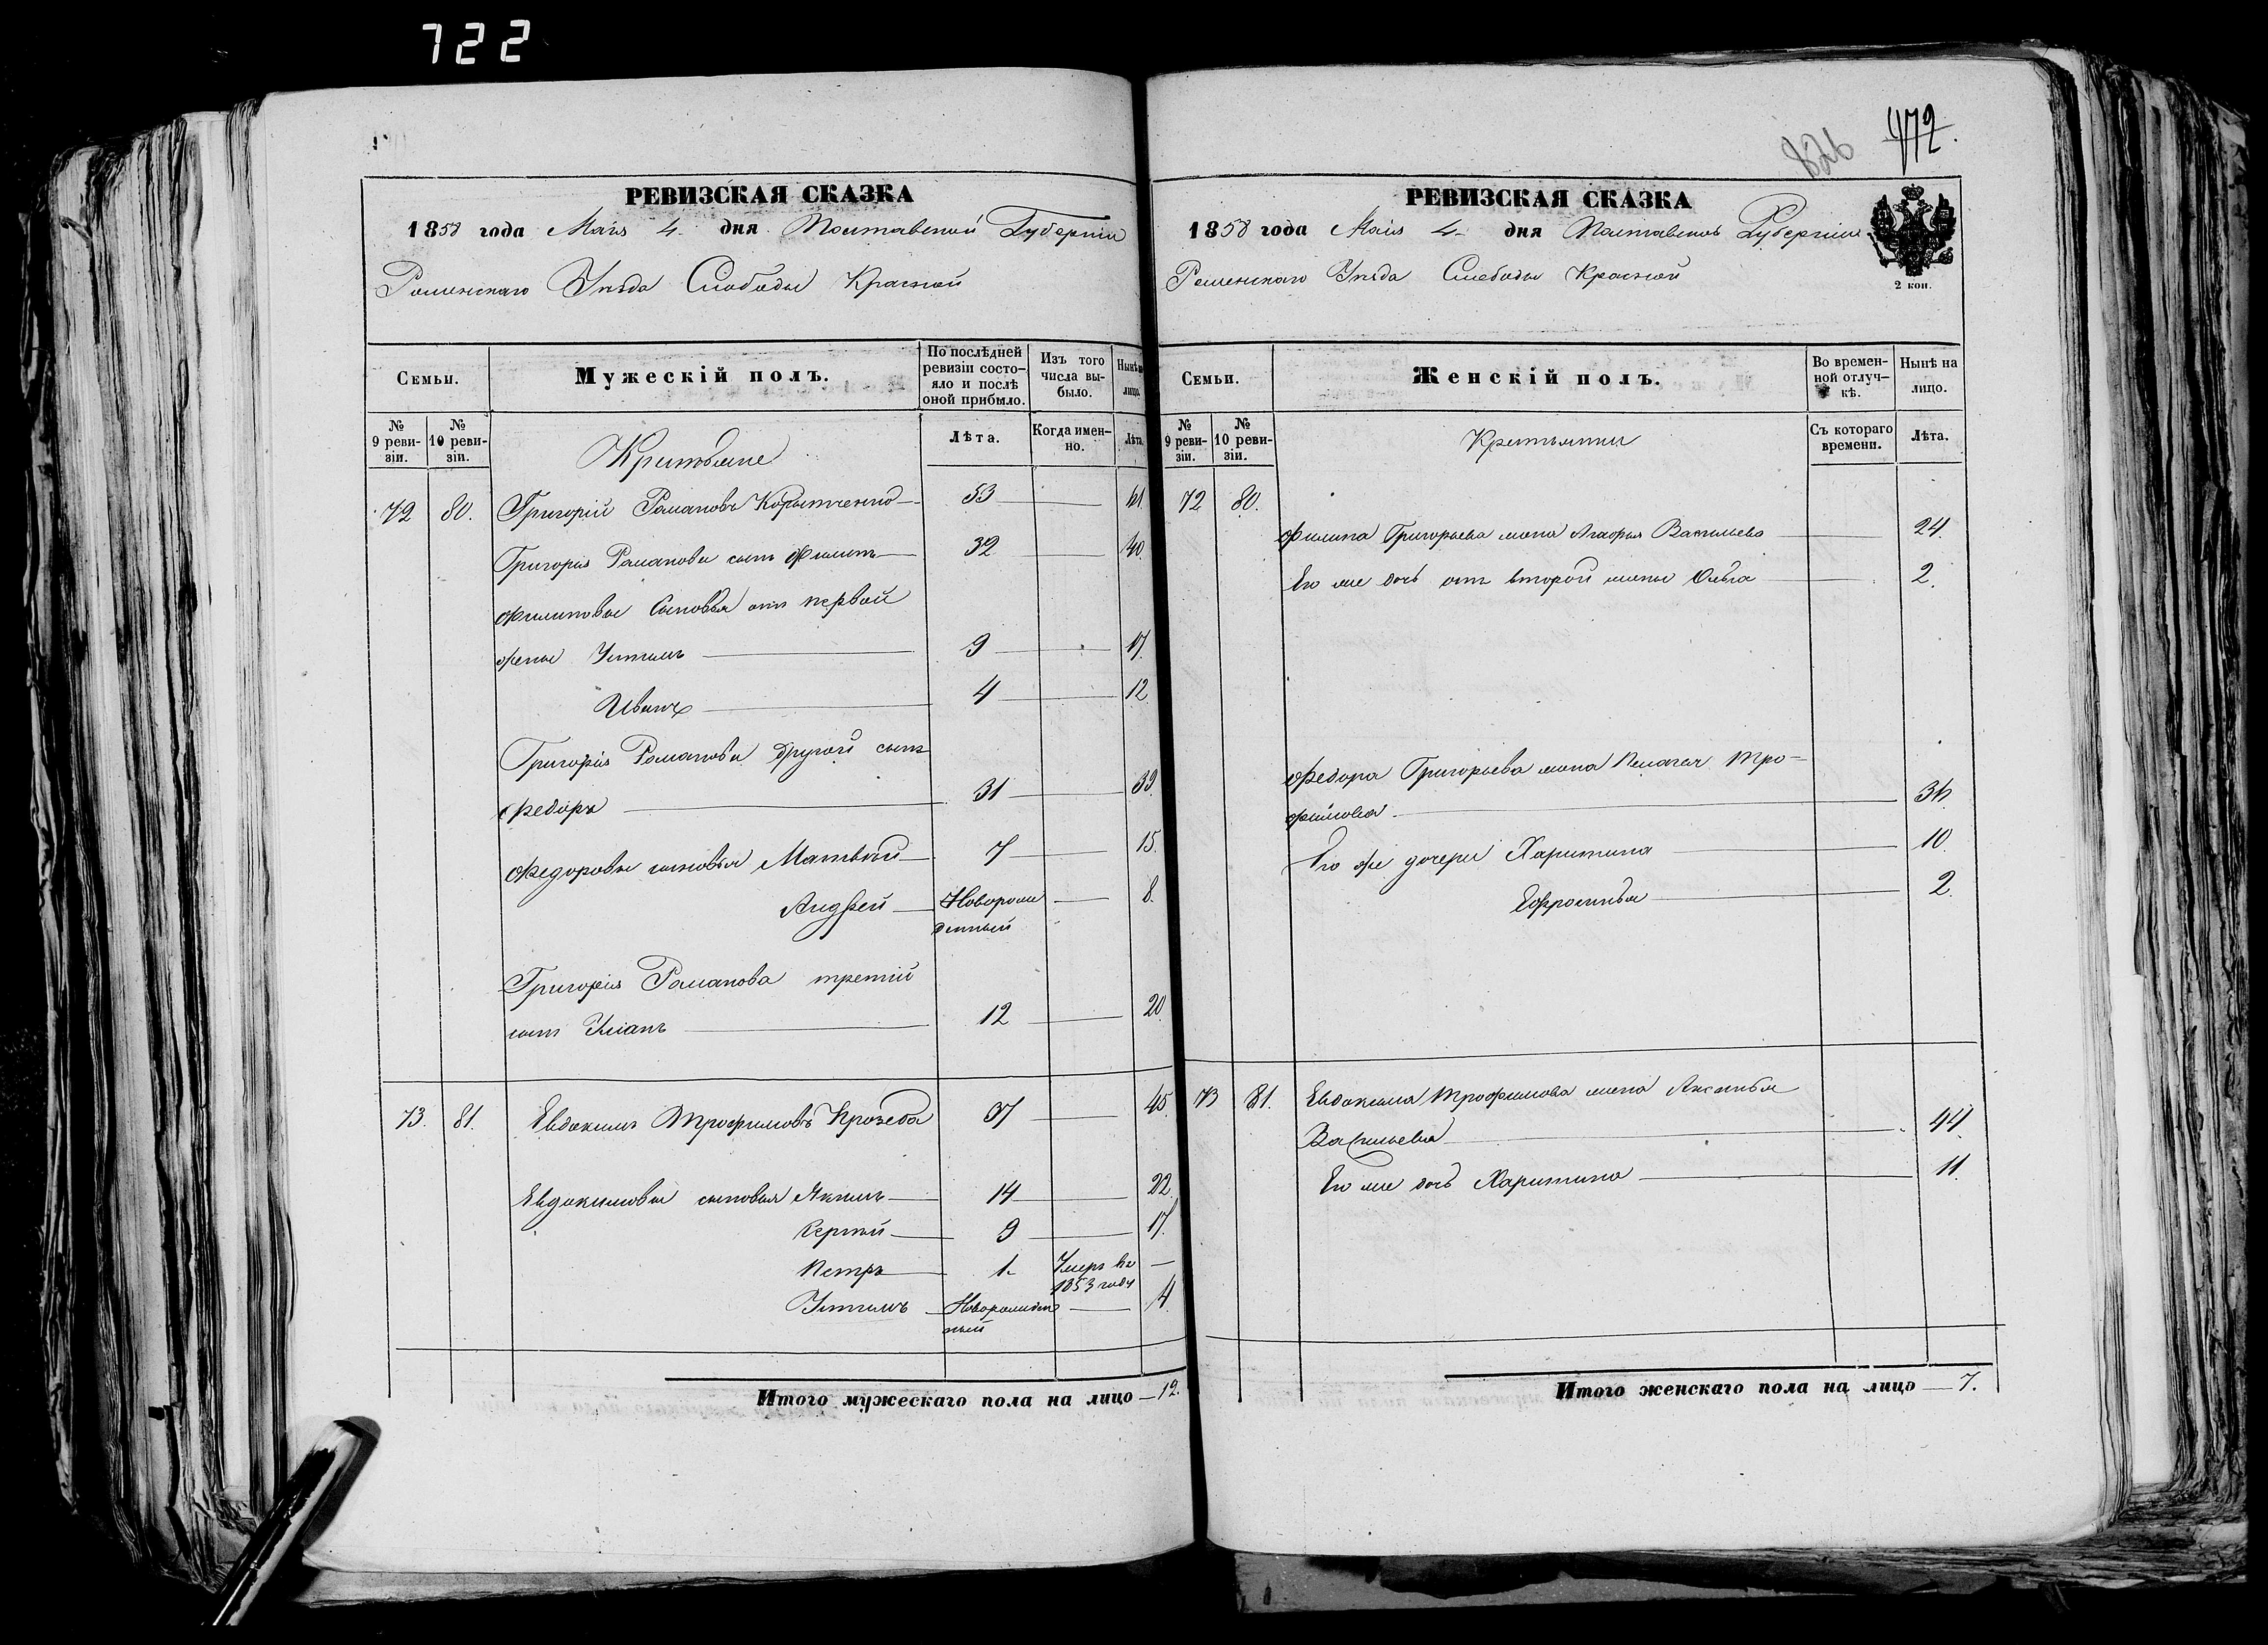 722
826
472.
РЕВИЗСКАЯ СКАЗКА
1858 года Маія 4 дня Полтавской Губерніи
Роменскаго Уѣзда Слободы Красной
Семьи.
Мужескій полъ.
По послѣдней ревизіи состояло и послѣ оной прибыло.
Изъ того числа выбыло.
Нынѣ на лицо.
№ 9 ревизіи.
№ 10 ревизіи.
Крестьяне
Лѣта.
Когда именно.
Лѣта.
72 80. Григорій Романовъ 53 — 61
Григорія Романова сынъ Филипъ — 32 — 40
Филиповы Сыновья отъ первой
жены Устимъ — 9 — 17
Иванъ — 4 — 12
Григорія Романова другой сынъ
Федоръ — 31 — 39
Федоровы сыновья Матвѣй — 7 — 15
Андрей — Новорож — 8
денный
Григорія Романова третій
сынъ — 12 — 20
73. 81. Евдокимъ Трофимовъ 37 — 45
Евдокимовы сыновья Якимъ — 14 — 22
Сергѣй — 9 — 17
Петръ — 1 Умеръ въ —
1853 году
Устимъ — Новорожден — 4
ный
Итого мужескаго пола на лицо — 12.
РЕВИЗСКАЯ СКАЗКА
1858 года Маія 4 дня Полтавской Губерніи
Роменскаго Уѣзда Слободы Красной
2 коп.
Семьи.
Женскій полъ.
Во временной отлучкѣ.
Нынѣ на лицо.
№ 9 ревизіи.
№ 10 ревизіи.
Крестьянки
Съ котораго времени.
Лѣта.
72 80.
Филипа Григорьева жена Васильева — 24
Его же дочь отъ второй жены Ольга — 2.
Федора Григорьева жена Пелагея Тро-
фимова — 36
Его же дочери Харитина — 10
Ефросинья — 2
73 81. Евдокима Трофимова жена Аксинья
Васильева — 44
Его же дочь Харитина — 11.
Итого женскаго пола на лицо — 7.